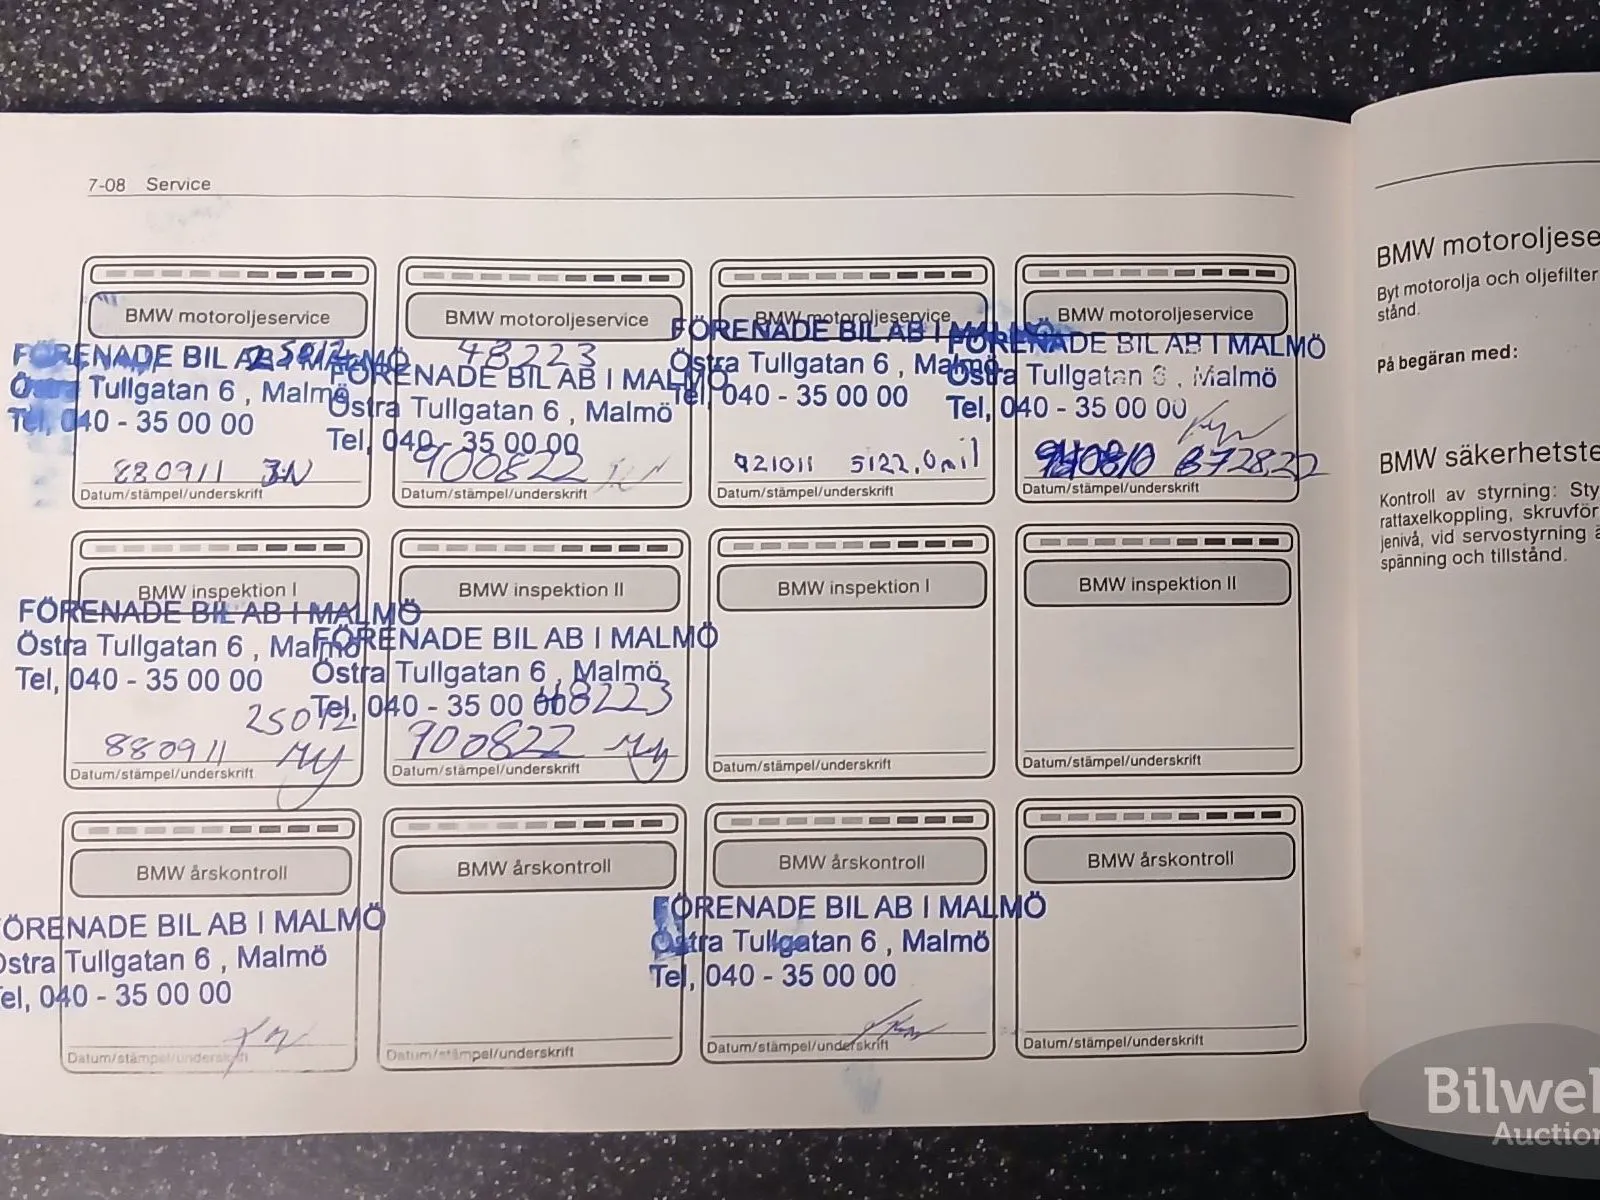 7-08 Service
BMW motoroljeservice
25012
FÖRENADE BIL AB I MALMÖ
Östra Tullgatan 6 , Malmö
Tel, 040 - 35 00 00
880911
Datum/stämpel/underskrift
BMW motoroljeservice
48223
FÖRENADE BIL AB I MALMÖ
Östra Tullgatan 6 , Malmö
Tel, 040 - 35 00 00
900822
Datum/stämpel/underskrift
BMW motoroljeservice
FÖRENADE BIL AB I MALMÖ
Östra Tullgatan 6 , Malmö
Tel, 040 - 35 00 00
921011 5122,0 mil
Datum/stämpel/underskrift
BMW motoroljeservice
FÖRENADE BIL AB I MALMÖ
Östra Tullgatan 6 , Malmö
Tel, 040 - 35 00 00
Datum/stämpel/underskrift
BMW inspektion I
FÖRENADE BIL AB I MALMÖ
Östra Tullgatan 6 , Malmö
Tel, 040 - 35 00 00
25012
880911
Datum/stämpel/underskrift
BMW inspektion II
FÖRENADE BIL AB I MALMÖ
Östra Tullgatan 6 , Malmö
Tel, 040 - 35 00 00
48223
900822
Datum/stämpel/underskrift
BMW inspektion I
Datum/stämpel/underskrift
BMW inspektion II
Datum/stämpel/underskrift
BMW årskontroll
ÖRENADE BIL AB I MALMÖ
Östra Tullgatan 6 , Malmö
el, 040 - 35 00 00
Datum/stämpel/underskrift
BMW årskontroll
Datum/stämpel/underskrift
BMW årskontroll
FÖRENADE BIL AB I MALMÖ
Östra Tullgatan 6 , Malmö
Tel, 040 - 35 00 00
Datum/stämpel/underskrift
BMW årskontroll
Datum/stämpel/underskrift
BMW motoroljese
Byt motorolja och oljefilter
stånd.
På begäran med:
BMW säkerhetste
Kontroll av styrning: Sty
rattaxelkoppling, skruvför
jenivå, vid servostyrning ä
spänning och tillstånd.
Bilwel
Auction